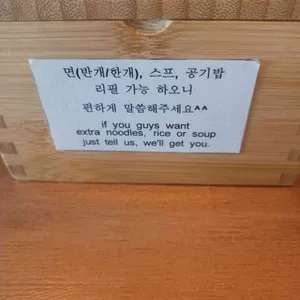 면(반개/한개), 스프, 공기밥
리필 가능 하오니
편하게 말씀해주세요^^
if you guys want
extra noodles, rice or soup
just tell us, we'll get you.